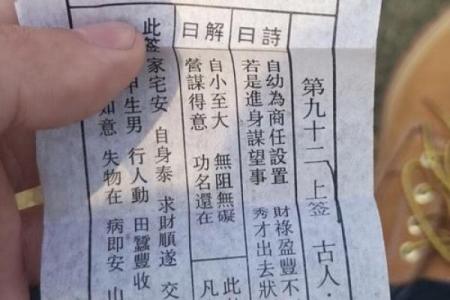 第九十二 上签 古人
詩曰
自幼為商任設置 財祿盈豐不
若是進身謀望事 秀才出去狀
解曰
自小至大 無阻無礙 此
營謀得意 功名還在 凡
此签家宅安 自身泰 求財順遂 交
甲生男 行人動 田蠶豐收
如意 失物在 病即安 山